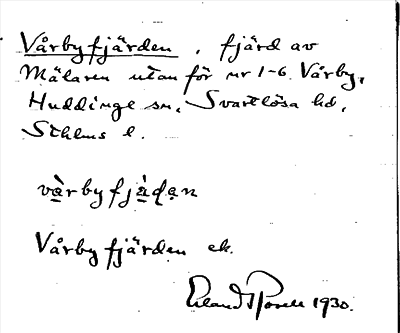 Vårbyfjärden, fjärd av
Mälaren utanför nr 1-6 Vårby,
Huddinge sn, Svartlösa hd,
Sthlms l.
vårbyfjàḍan
Vårbyfjärden ek.
Erland Rosell 1930.